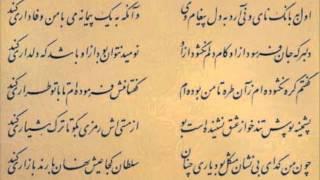 اول به بانگ نای و نی آرد به دل پیغام وی وانگه به یک پیمانه می با من وفاداری کند
دلبر که جان فرسود ازو کام دلم نگشود ازو نومید نتوان بود ازو باشد که دلداری کند
گفتم گره نگشوده‌ام زان طره تا من بوده‌ام گفتا منش فرموده‌ام تا با تو طراری کند
پشمینه پوش تندخو از عشق نشنیده است بو از مستی‌اش رمزی بگو تا ترک هشیاری کند
چون من گدای بی نشان مشکل بود یاری چنان سلطان کجا عیش نهان با رند بازاری کند